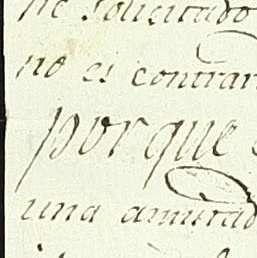 he solicitado
no es contrar
porque
una amistad